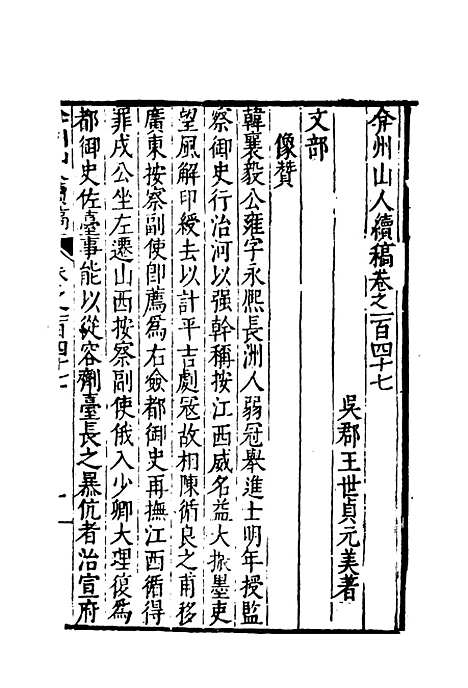 弇州山人續稿卷之一百四十七
吳郡王世貞元美著
文部
像贊
韓襄毅公雍字永熙長洲人弱冠舉進士明年授監
察御史行治河以强幹稱按江西威名益大振墨吏
望風解印綬去以計平吉劇冦故相陳循良之甫移
廣東按察副使即薦爲右僉都御史再撫江西循得
罪戍公坐左遷山西按察副使俄入少卿大理復爲
都御史佐臺事能以從容劑臺長之暴伉者治宣府
卷之一百四十七
一